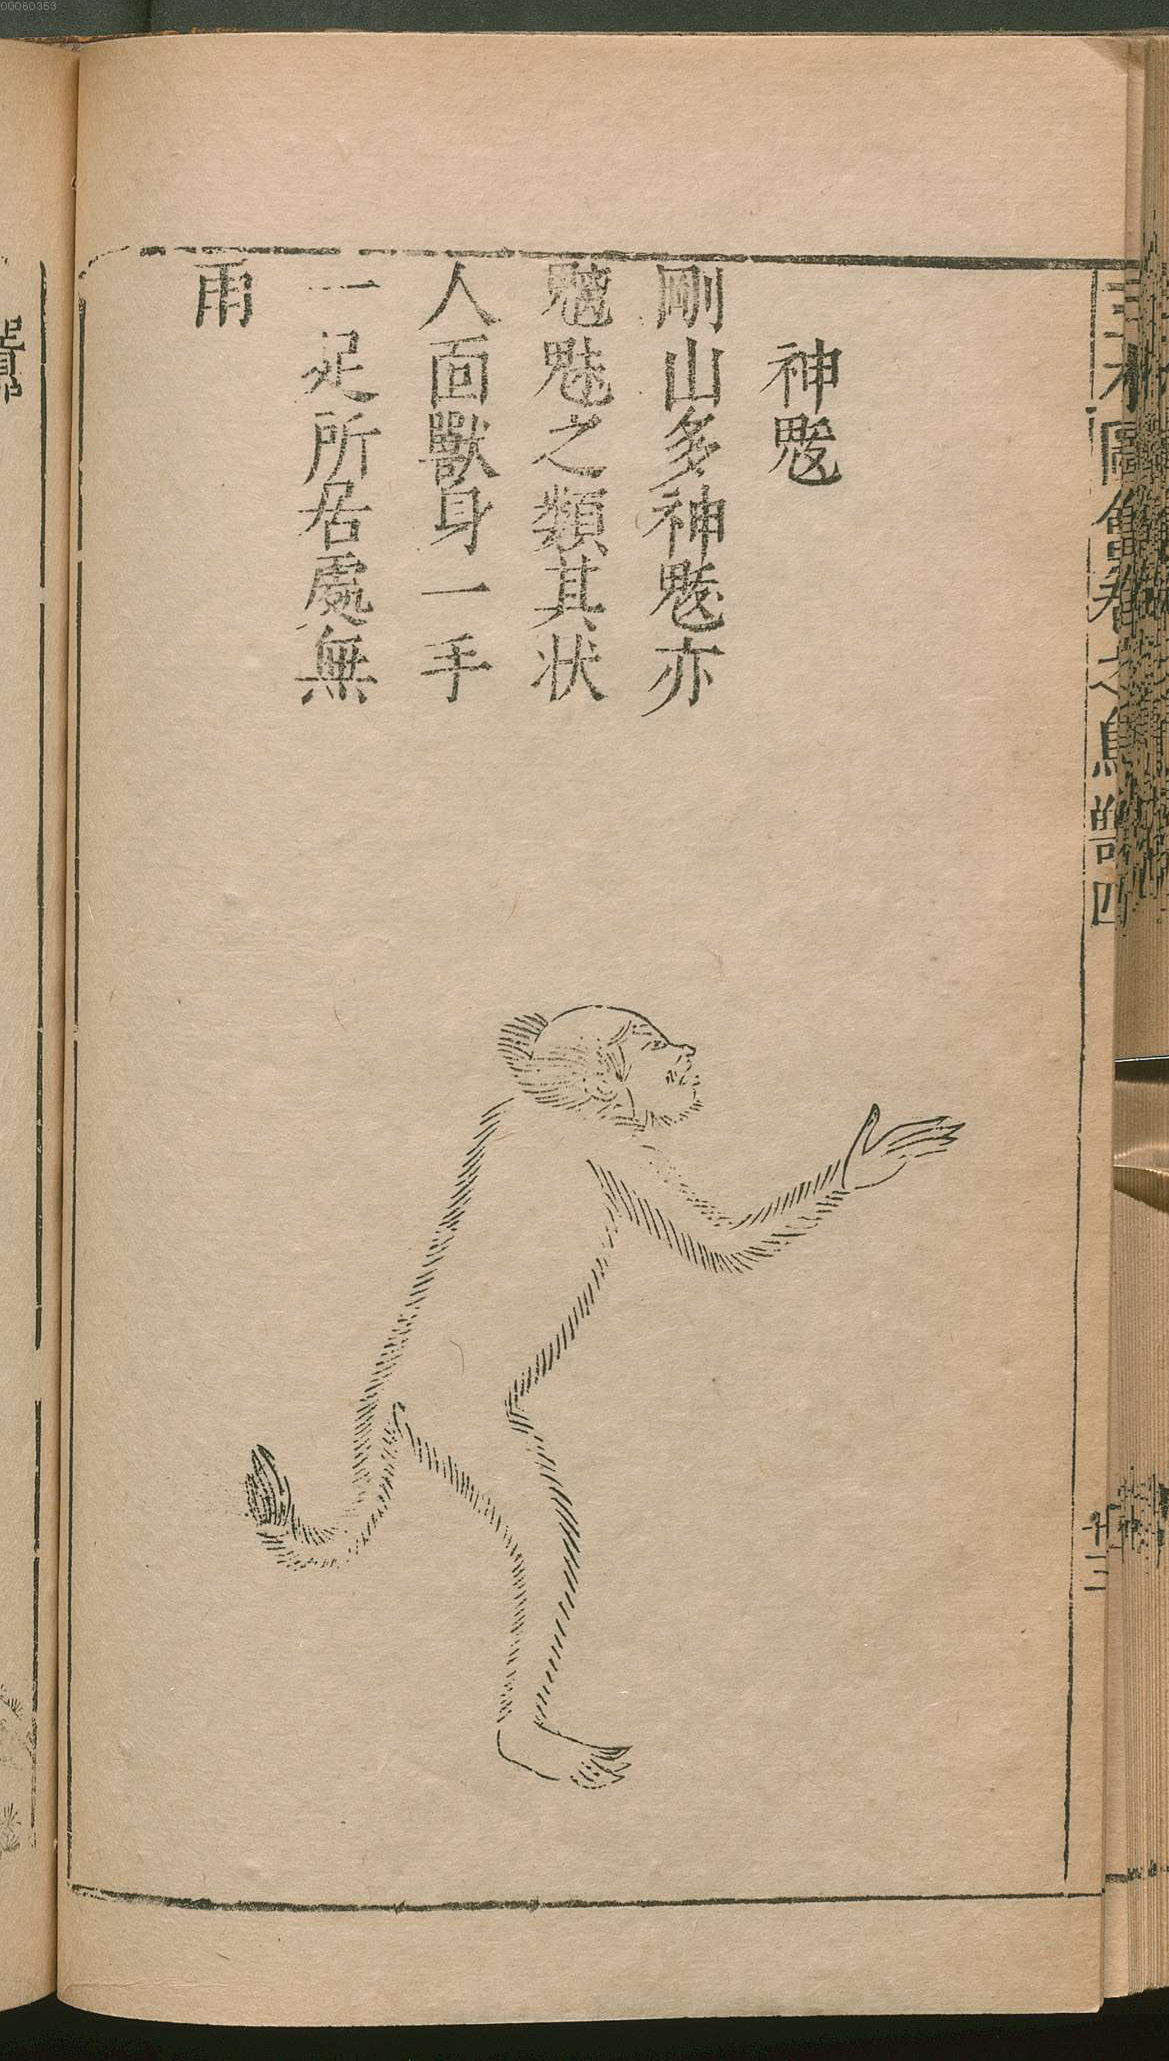 00060353
神䰠
剛山多神䰠亦
魑魅之類其状
人面獸身一手
一足所居處無
雨
圖會
鳥獸四
廿三